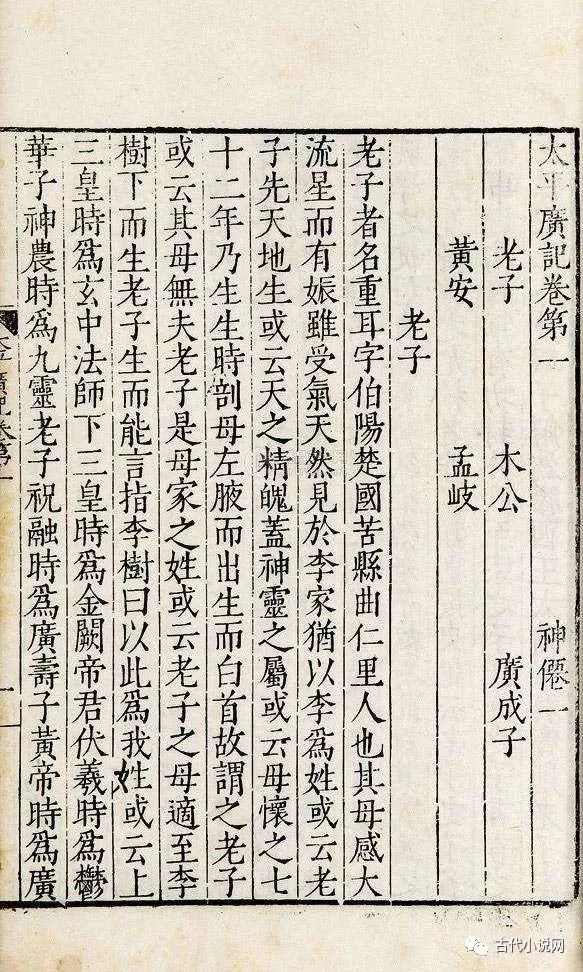 太平廣記卷第一　神僊一
老子　木公　廣成子
黃安　孟岐
老子
老子者名重耳字伯陽楚國苦縣曲仁里人也其母感大
流星而有娠雖受氣天然見於李家猶以李爲姓或云老
子先天地生或云天之精魄蓋神靈之屬或云母懷之七
十二年乃生生時剖母左腋而出生而白首故謂之老子
或云其母無夫老子是母家之姓或云老子之母適至李
樹下而生老子生而能言指李樹曰以此爲我姓或云上
三皇時爲玄中法師下三皇時爲金闕帝君伏羲時爲鬱
華子神農時爲九靈老子祝融時爲廣壽子黃帝時爲廣
廣記卷第一
一
古代小说网